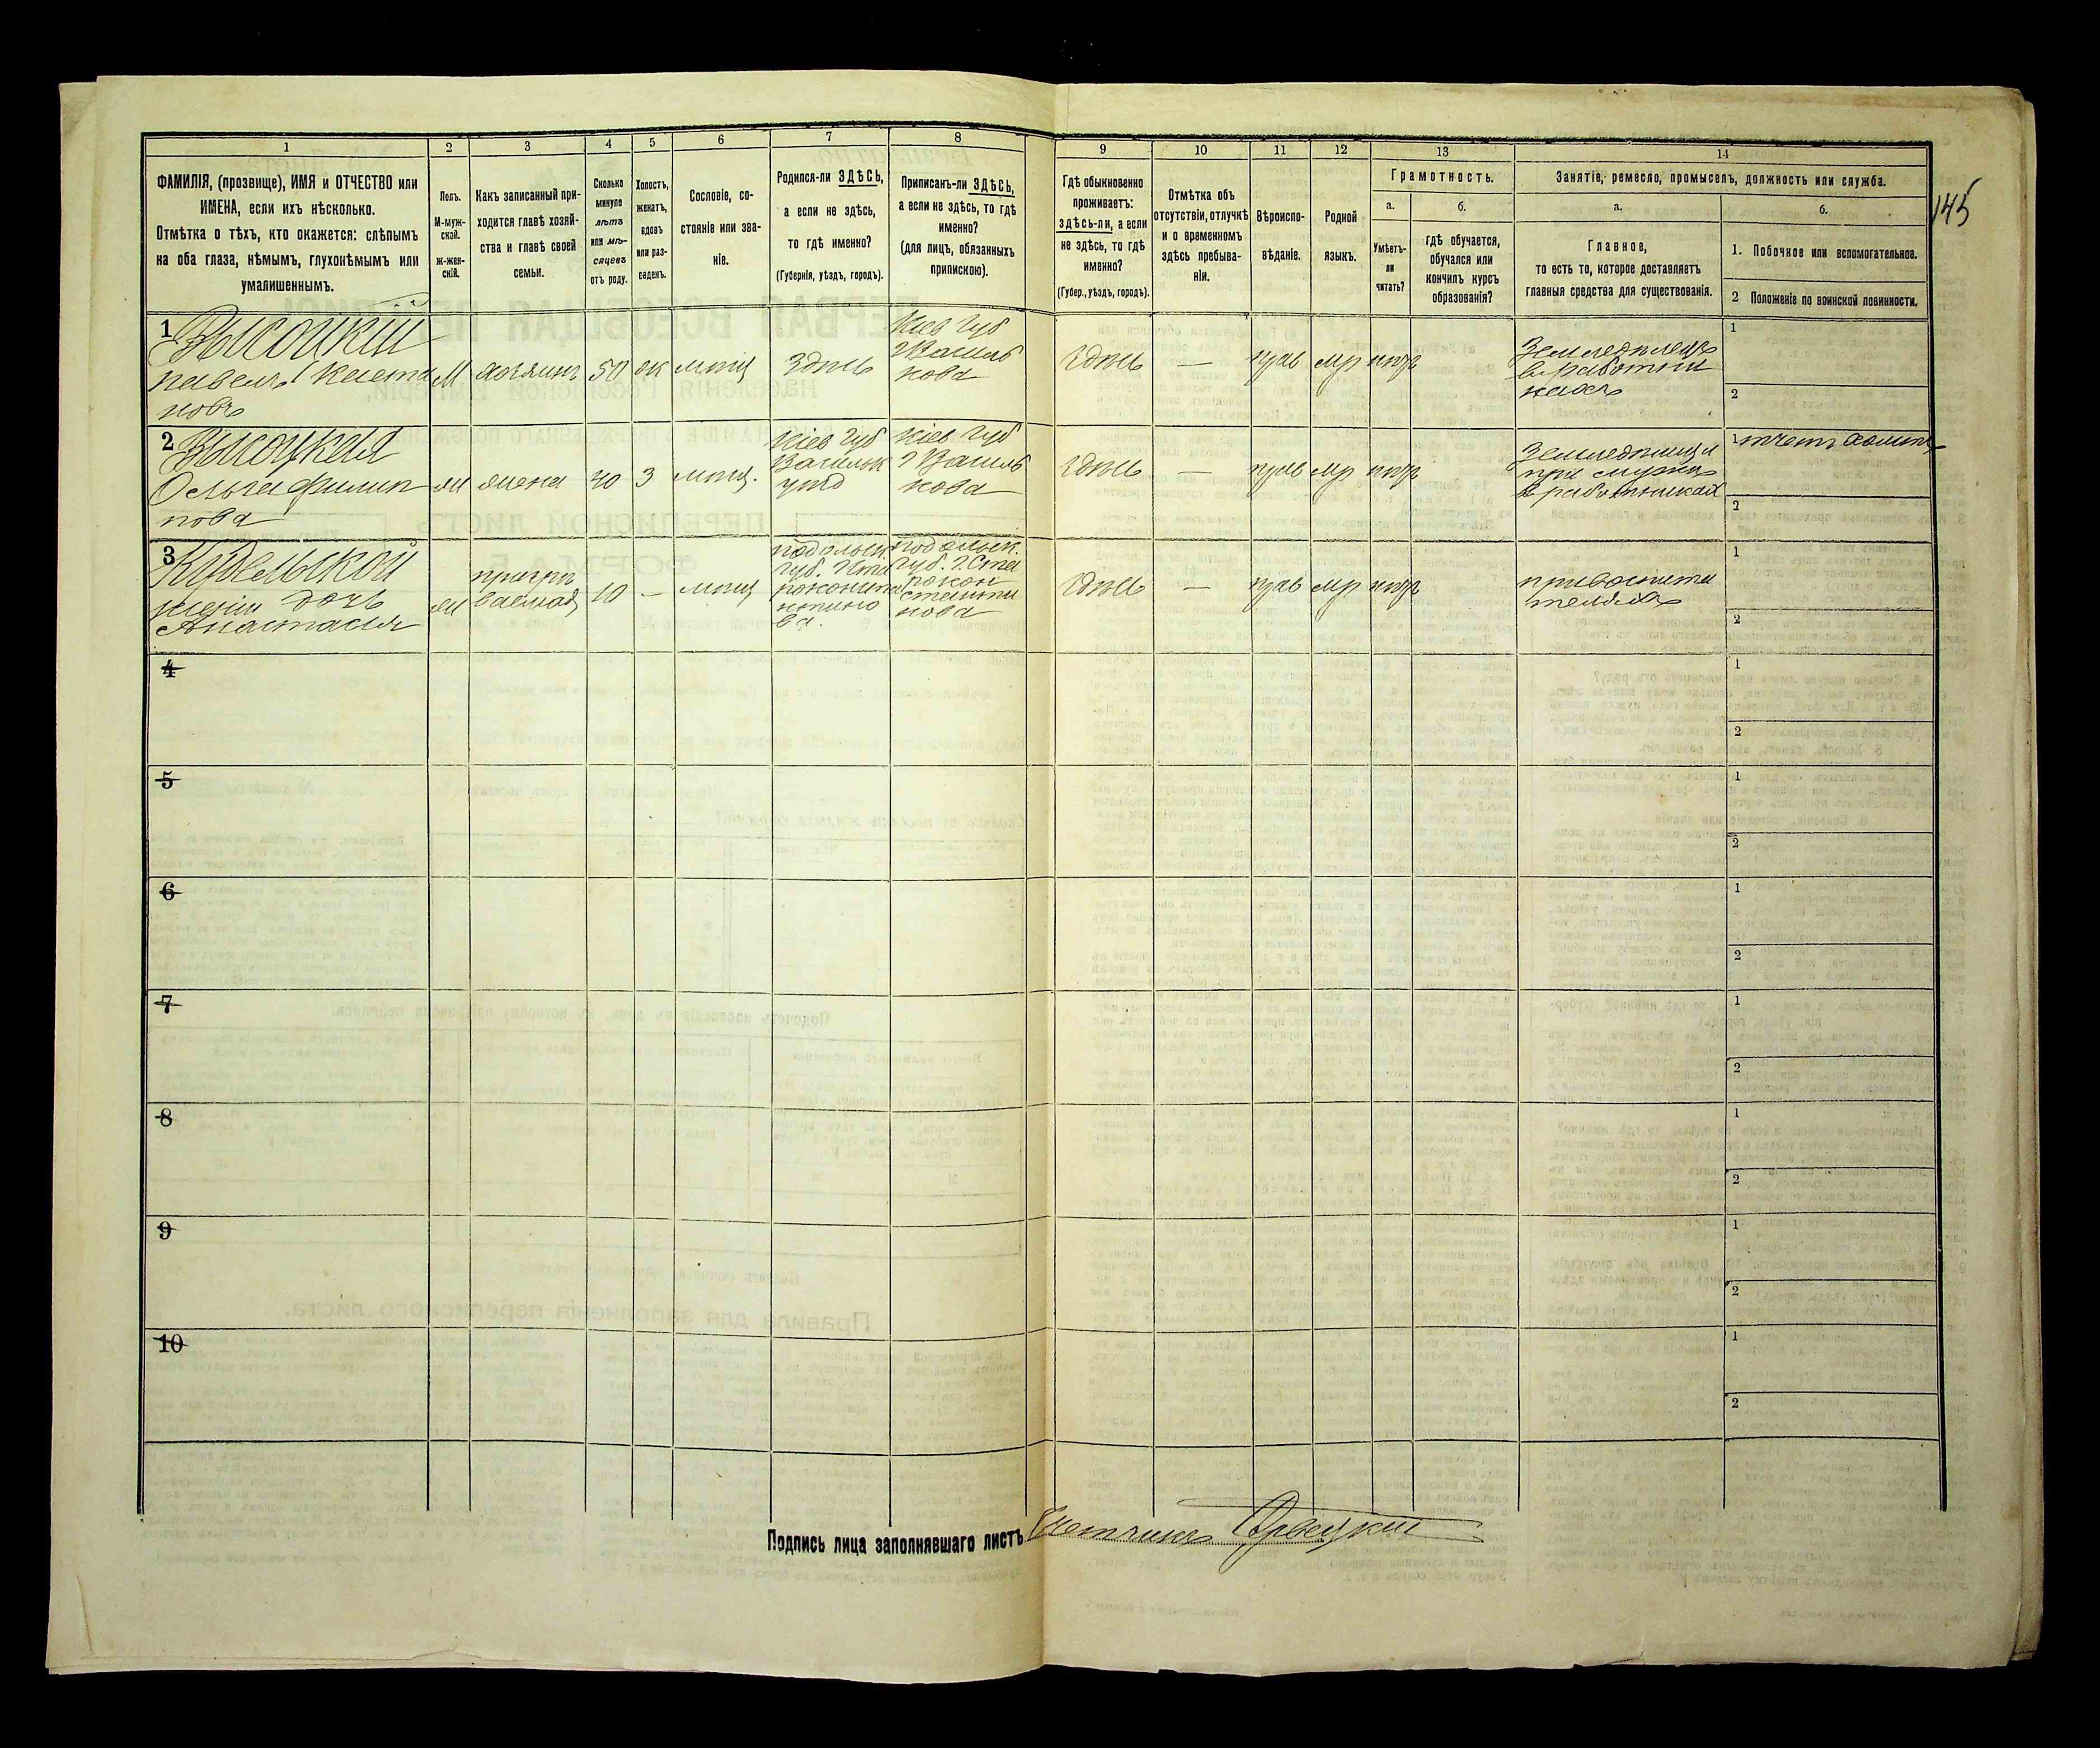 1
2
3
4
5
6
7
8
9
10
11
12
13
14
ФАМИЛІЯ, (прозвище), ИМЯ и ОТЧЕСТВО или
ИМЕНА, если ихъ нѣсколько.
Отмѣтка о тѣхъ, кто окажется: слѣпымъ
на оба глаза, нѣмымъ, глухонѣмымъ или
умалишеннымъ.
Полъ.
М-муж-
ской.
ж-жен-
скій.
Какъ записанный при-
ходится главѣ хозяй-
ства и главѣ своей
семьи.
Сколько
минуло
лѣтъ
или мѣ-
сяцевъ
отъ роду.
Холостъ,
женатъ,
вдовъ
или раз-
веденъ.
Сословіе, со-
стояніе или зва-
ніе.
Родился-ли ЗДѢСЬ,
а если не здѣсь,
то гдѣ именно?
(Губернія, уѣздъ, городъ).
Приписанъ-ли ЗДѢСЬ,
а если не здѣсь, то гдѣ
именно?
(для лицъ, обязанныхъ
припискою).
Гдѣ обыкновенно
проживаетъ:
здѣсь-ли, а если
не здѣсь, то гдѣ
именно?
(Губер., уѣздъ, городъ).
Отмѣтка объ
отсутствіи, отлучкѣ
и о временномъ
здѣсь пребыва-
ніи.
Вѣроиспо-
вѣданіе.
Родной
языкъ.
Грамотность.
а.
б.
Умѣетъ-
ли
читать?
гдѣ обучается,
обучался или
кончилъ курсъ
образованія?
Занятіе, ремесло, промыселъ, должность или служба.
а.
б.
Главное,
то есть то, которое доставляетъ
главныя средства для существованія.
1. Побочное или вспомогательное.
2 Положеніе по воинской повинности.
145
1
Высоцкій
Павелъ Каета
новъ
М
хозяинъ
50
ж
мѣщ
Здѣсь
Кіев губ
г Василь
кова
здѣсь
—
прав
мр
нѣтъ
Земледѣлецъ
въ работни
кахъ
1
2
2
Высоцкая
Ольга Филип
пова
ж
жена
40
з
мѣщ.
Кіев губ
Васильк
уѣзд
Кіев губ
г Василь
кова
здѣсь
—
прав
мр
нѣтъ
Земледѣлица
при мужѣ
в работникахъ
1
2
3
дочь
Анастасія
ж
10
—
мѣщ
Подольск.
губ. г Ста
роконста
нтино
ва.
Подольск.
губ. г Ста
рокон
стантин
нова
здѣсь
—
прав
мр
нѣтъ
при воспита
теляхъ
1
2
4
1
2
5
1
2
6
1
2
7
1
2
8
1
2
9
1
2
10
1
2
Подпись лица заполнявшаго листъ Счетчикъ